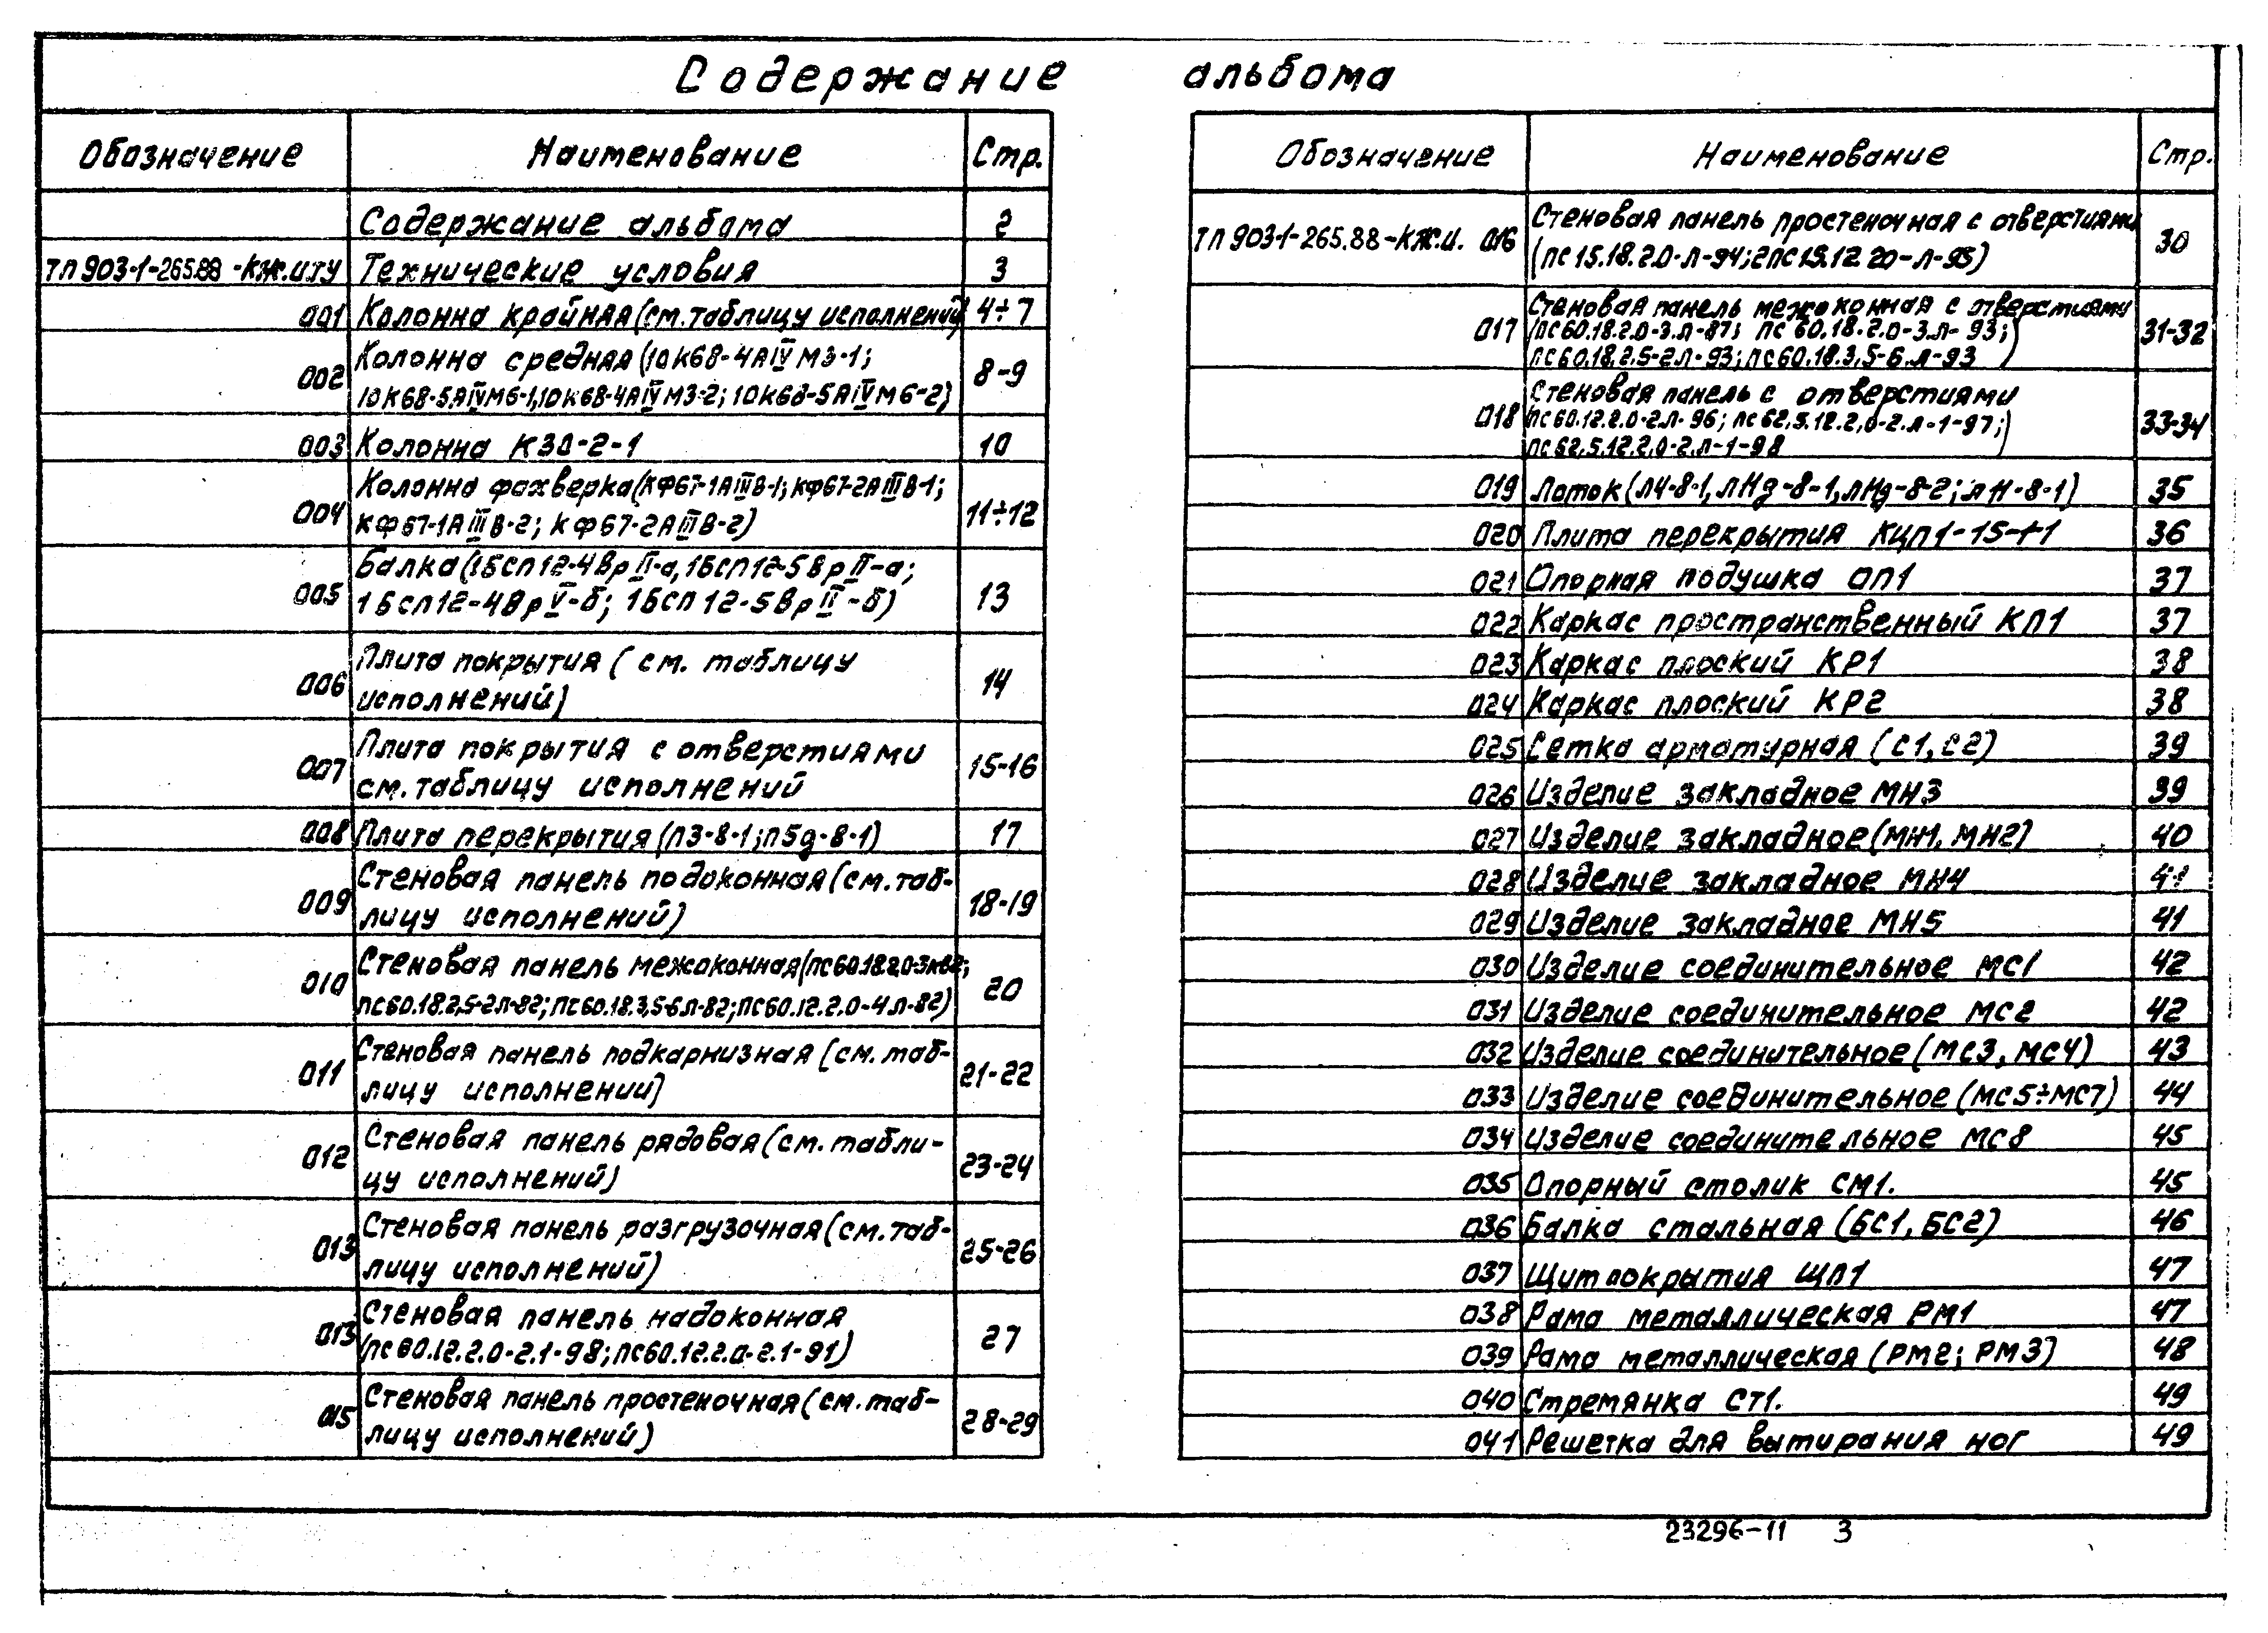 Содержание альбома
Обозначение Наименование Стр.
Содержание альбома 2
ТП 903-1-265.88-КЖ.И.ТУ Технические условия 3
001 Колонна крайняя (см. таблицу исполнений) 4÷7
002 Колонна средняя (10К68-4АIVМ3-1; 8-9
10К68-5АIVМ6-1, 10К68-4АIVМ3-2; 10К68-5АIVМ6-2)
003 Колонна К30-2-1 10
004 Колонна фахверка (КФ67-1АIIIВ-1; КФ67-2АIIIВ-1; 11÷12
КФ67-1АIIIВ-2; КФ67-2АIIIВ-2)
005 Балка (1БСП12-4Вр II-а, 1БСП12-5Вр II-а; 13
1БСП12-4Вр V-б; 1БСП12-5Вр II-б)
006 Плита покрытия (см. таблицу 14
исполнений)
007 Плита покрытия с отверстиями 15-16
см. таблицу исполнений
008 Плита перекрытия (П3-8-1; П5д-8-1) 17
009 Стеновая панель подоконная (см. таб- 18-19
лицу исполнений)
010 Стеновая панель межоконная (ПС60.18.2.0-3л-82; 20
ПС60.18.2,5-2л-82; ПС60.18.3,5-6л-82; ПС60.12.2.0-4л-82)
011 Стеновая панель подкарнизная (см. таб- 21-22
лицу исполнений)
012 Стеновая панель рядовая (см. табли- 23-24
цу исполнений)
013 Стеновая панель разгрузочная (см. таб- 25-26
лицу исполнений)
013 Стеновая панель надоконная 27
(ПС60.12.2.0-2.1-98; ПС60.12.2.0-2.1-91)
015 Стеновая панель простеночная (см. таб- 28-29
лицу исполнений)
Обозначение Наименование Стр.
ТП 903-1-265.88-КЖ.И. 016 Стеновая панель простеночная с отверстиями 30
(ПС15.18.2.0-Л-94; 2ПС15.12.20-Л-95)
017 Стеновая панель межоконная с отверстиями 31-32
(ПС60.18.2.0-3.Л-87; ПС60.18.2.0-3.Л-93;
ПС60.18.2.5-2Л-93; ПС60.18.3,5-6.Л-93)
018 Стеновая панель с отверстиями 33-34
(ПС60.12.2.0-2.Л-96; ПС62,5.12.2,0-2.Л-1-97;
ПС62,5.12.2,0-2.Л-1-98)
019 Лоток (Л4-8-1, ЛНд-8-1, ЛНд-8-2; ЛН-8-1) 35
020 Плита перекрытия КЦП1-15-+1 36
021 Опорная подушка ОП1 37
022 Каркас пространственный КП1 37
023 Каркас плоский КР1 38
024 Каркас плоский КР2 38
025 Сетка арматурная (С1, С2) 39
026 Изделие закладное МН3 39
027 Изделие закладное (МН1, МН2) 40
028 Изделие закладное МН4 41
029 Изделие закладное МН5 41
030 Изделие соединительное МС1 42
031 Изделие соединительное МС2 42
032 Изделие соединительное (МС3, МС4) 43
033 Изделие соединительное (МС5÷МС7) 44
034 Изделие соединительное МС8 45
035 Опорный столик СМ1. 45
036 Балка стальная (БС1, БС2) 46
037 Щит покрытия ЩП1 47
038 Рама металлическая РМ1 47
039 Рама металлическая (РМ2; РМ3) 48
040 Стремянка СТ1. 49
041 Решетка для вытирания ног 49
23296-11 3